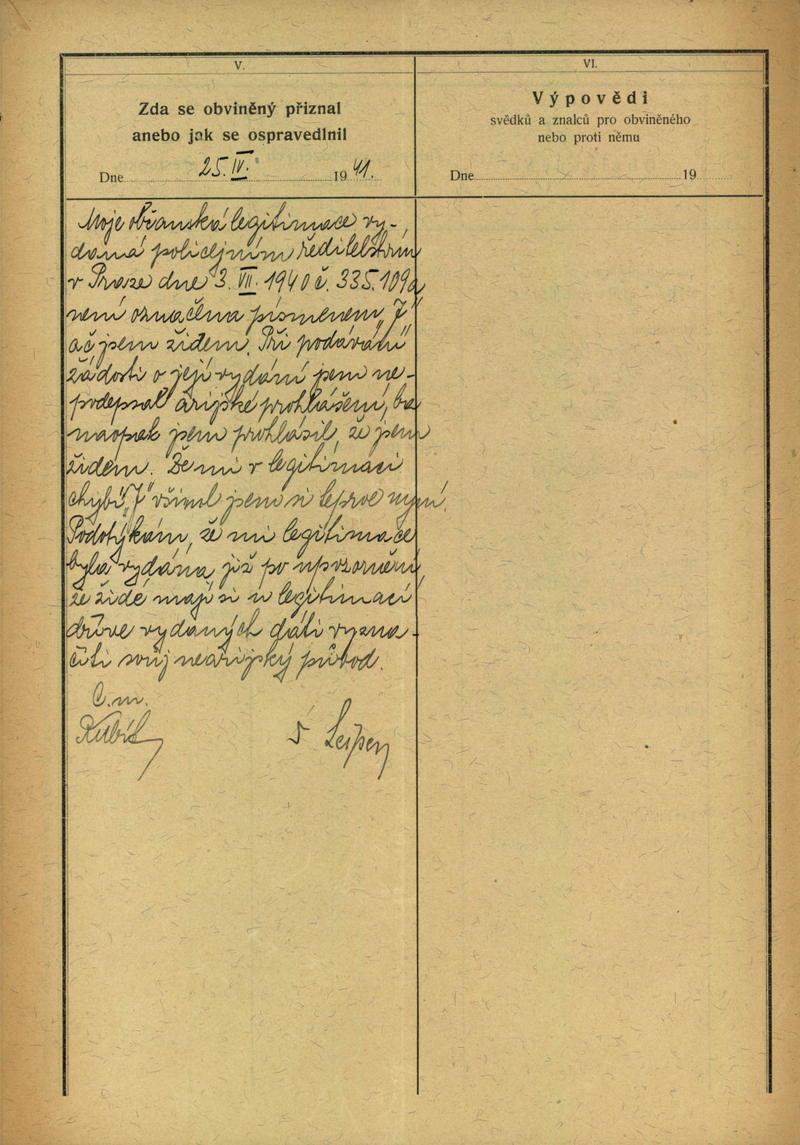 V.
Zda se obviněný přiznal
anebo jak se ospravedlnil
Dne 25. IV. 1941.
Moje občanská legitimace vy-
daná policejním ředitelstvím
v Praze dne 3. VII. 1940 č. 335.109
není označena písmenem „J"
ač jsem židem. Při podávání
žádosti o její vydání jsem ne-
podepsal árijské prohlášení, ba
naopak jsem prohlásil, že jsem
židem. Že mi v legitimaci
chybí „J" všiml jsem si teprve nyní.
Podotýkám, že mi legitimace
byla vydána již po upozornění,
že židé mají si v legitimaci
dříve vydaných dáti vyzna-
čiti svůj neárijský původ.
C.m.
VI.
Výpovědi
svědků a znalců pro obviněného
nebo proti němu
Dne 19